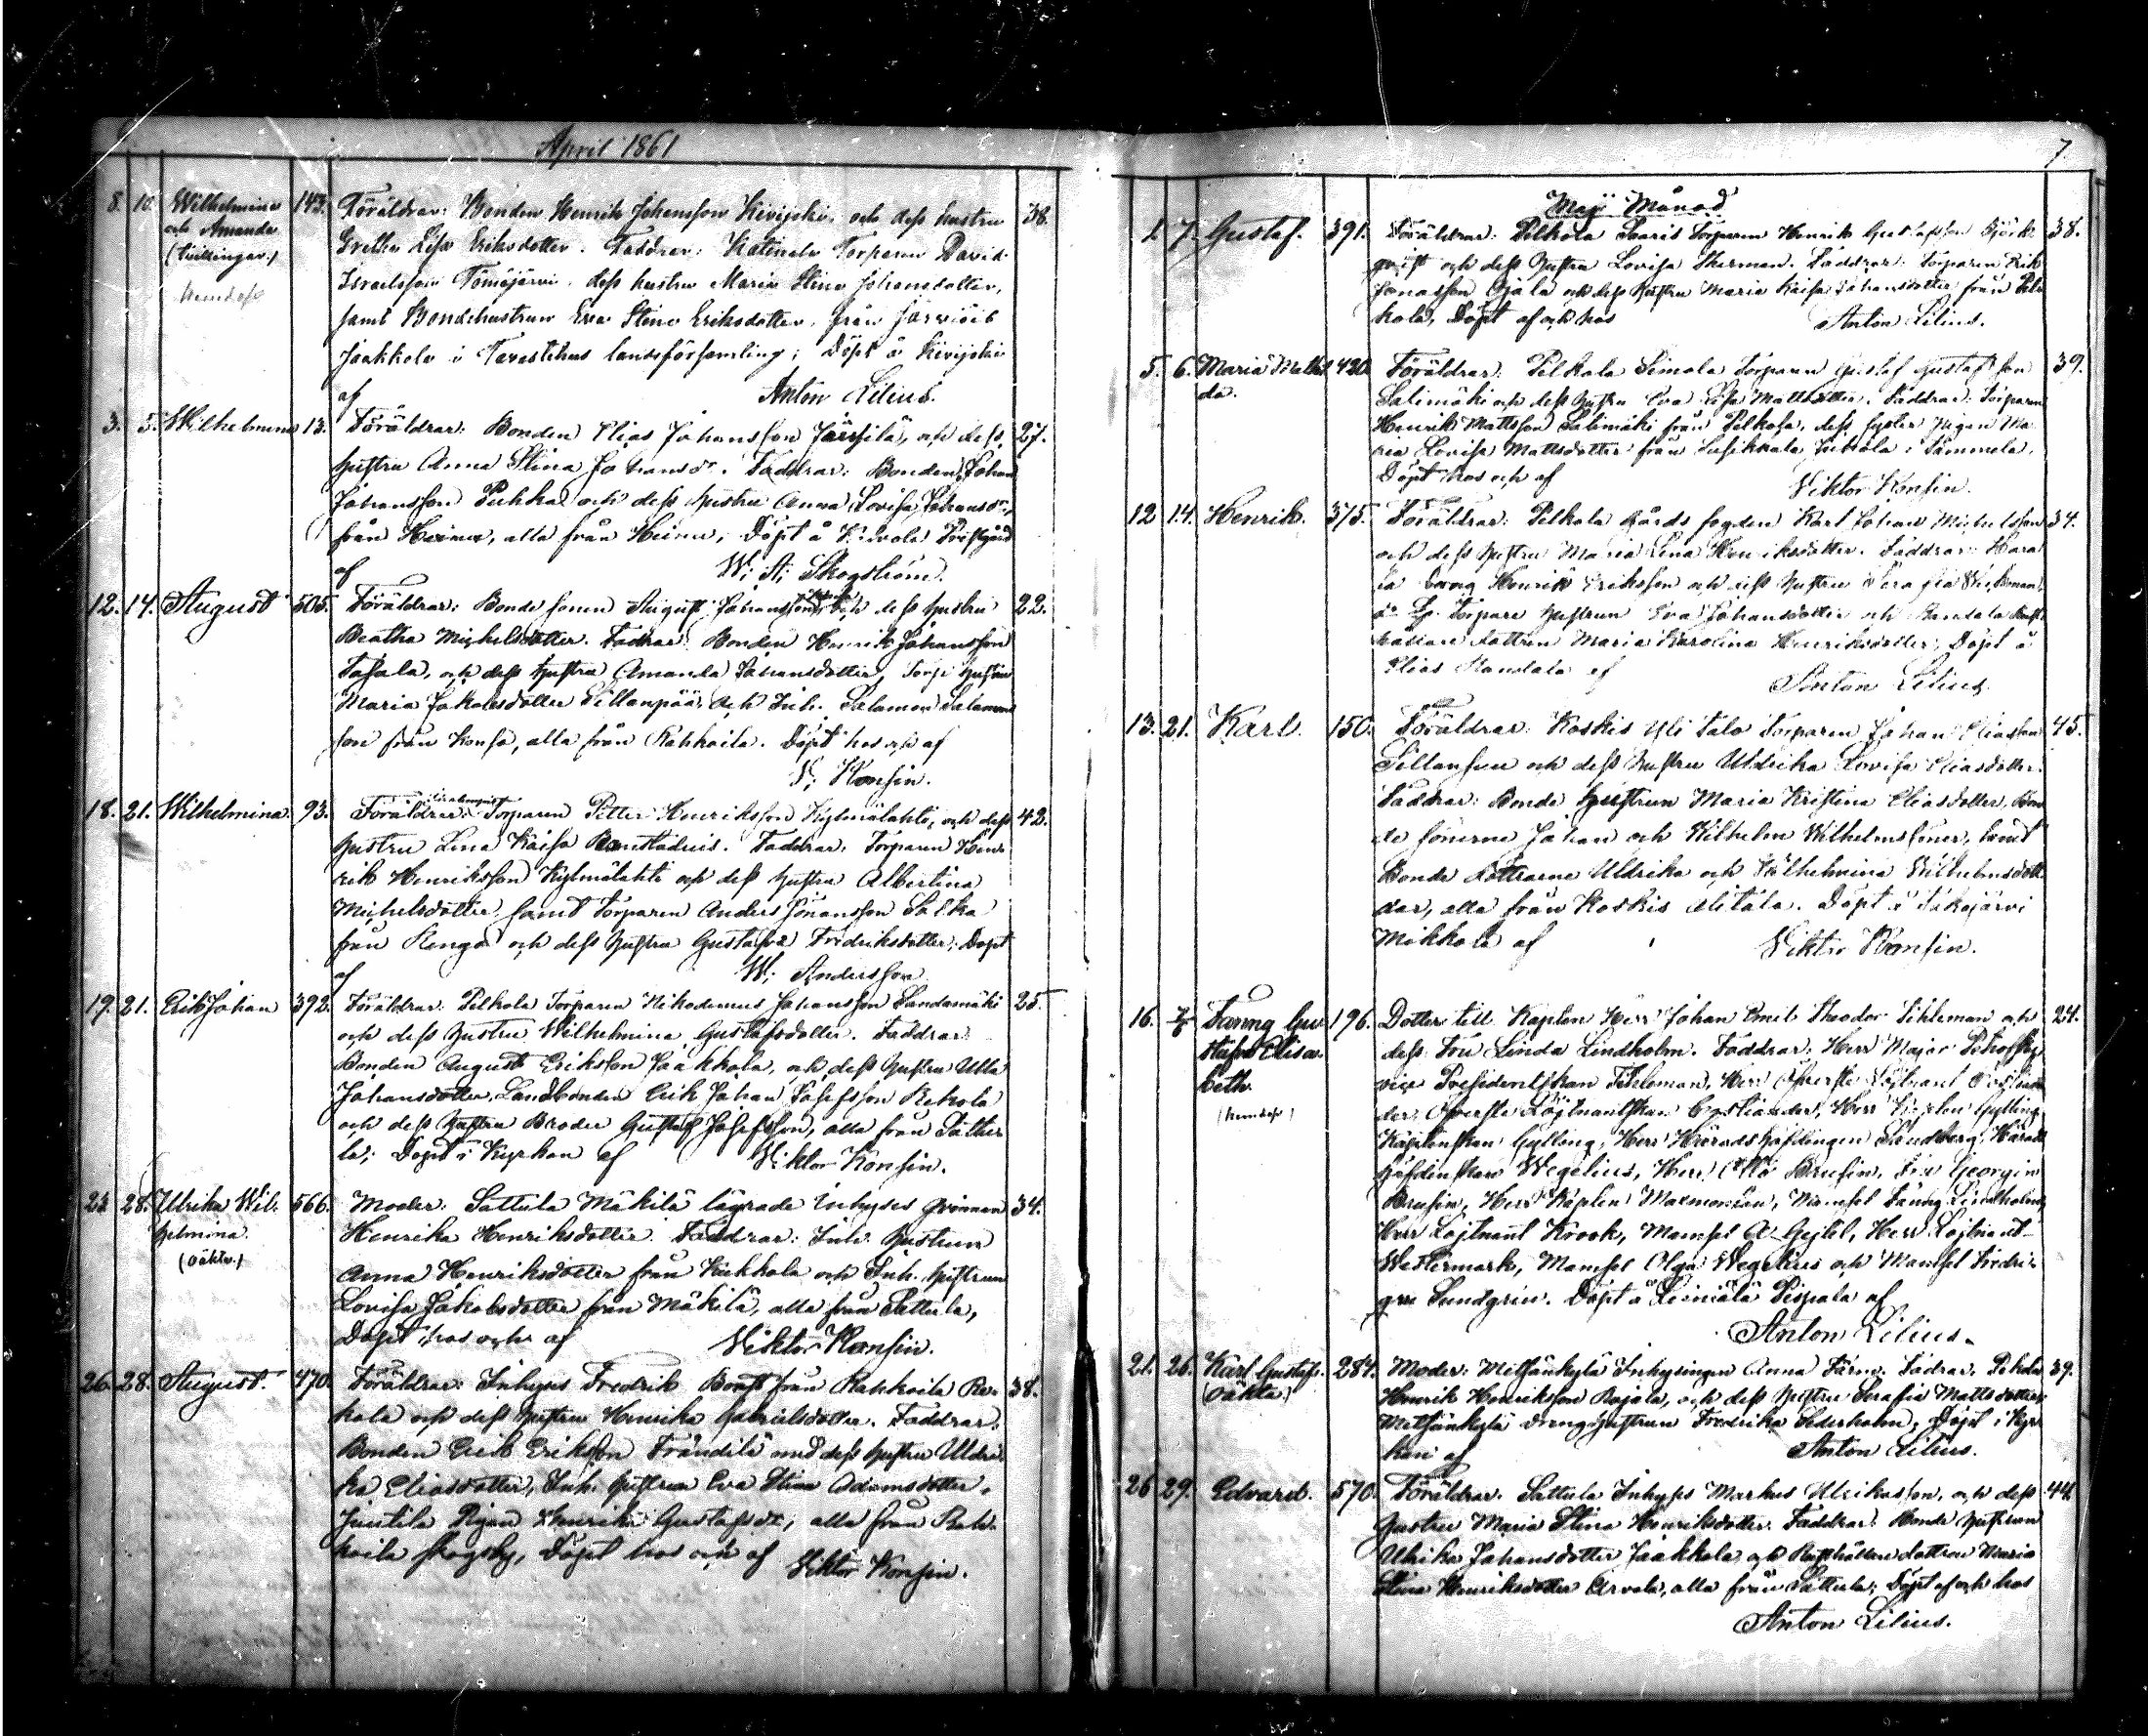 April 1861
8. 10. Wilhelmina 143. Föräldrar: Bonden Henrik Johansson Kivijoki och dess hustru 38.
och Amanda Gretha Lisa Eriksdotter. Faddrar: Katinala Torparen David
(tvillingar.) Israelsson Tömäjärvi, dess hustru Maria Stina Johansdotter,
samt Bondehustrun Eva Stina Eriksdotter, från
Jaakkola i Tavastehus landsförsamling; Döpt å Kivijoki
af Anton Lilius.
3. 5. Wilhelmina 13. Föräldrar: Bonden Elias Johansson Järppilä, och dess 27.
hustru Anna Stina Johansdr. Faddrar: Bonden Johan
Johansson Pukka och dess hustru Anna Lovisa Johansdr,
från Heinu, alla från Heinu; Döpt å
af W: A: Skogström.
12. 14. August 505. Föräldrar: Bonde sonen August Johansson och dess hustru 22.
Beatha Michelsdotter. Faddrar: Bonden Henrik Johansson
och dess hustru Amanda Johansdotter, Torp: hustrun
Maria Jakobsdotter Sillanpää, och Inh. Salomon Salomons
son från Konsa, alla från Rahkoila. Döpt hos och af
V. Konsin.
18. 21. Wilhelmina. 93. Föräldrar: Torparen Petter Henriksson Kylmälahti, och dess 42.
hustru Lena Kaisa Faddrar: Torparen Hen-
rik Henriksson Kylmälahti och dess hustru Albertina
Michelsdotter, samt Torparen Anders Jonansson
från och dess hustru Gustafva Fredriksdotter; Döpt
af W: Andersson
19. 21. Erik Johan 392. Föräldrar: Pelkola Torparen Nikodemus Johansson Sandamäki 25.
och dess hustru Wilhelmina Gustafsdotter. Faddrar:
Bonden August Eriksson Jaakkola, och dess hustru Ulla
Johansdotter, Landbonden Erik Johan Josefsson Rekola
och dess hustru Broder Gustaf Josefsson, alla från Sattu
la; Döpt i Kyrkan af Viktor Konsin.
28. Ulrika Wil- 566. Moder: Sattula Mäkilä lägrade Inhyses qvinnan 34.
helmina. Henrika Henriksdotter. Faddrar: Inh. hustrun
(oäkta.) Anna Henriksdotter från Kukkola och Inh. hustrun
Lovisa Jakobsdotter från Mäkilä, alla från Sattula,
Döpt hos och af Viktor Konsin.
26. 28. August. 470. Föräldrar: Inhyses Fredrik från Rahkoila Re- 38.
kola och dess hustru Henrika Gabrielsdotter. Faddrar:
Bonden Erik Eriksson Frändilä med dess hustru Uldri-
ka Eliasdotter, Inh. hustrun Eva Stina Adamsdotter,
Juntila Pigan Henrika Gustafsdr, alla från Rah-
koila Skogsby, Döpt hos och af Viktor Konsin.
7.
Maji Månad
1. 7. Gustaf. 391. Föräldrar: Pelkola Saaris Torparen Henrik Gustafsson Björk- 38.
qvist och dess hustru Lovisa Åkerman. Faddrar: Torparen Erik
Jonasson Ojala och dess hustru Maria Kaisa Johansdotter från Pel
kola, Döpt af och hos Anton Lilius.
5. 6. Maria Mathil 420. Föräldrar: Pelkola Simola Torparen Gustaf Gustafsson 39.
da. Salimäki och dess hustru Eva Lisa Mattsdotter. Faddrar: Torparen
Henrik Mattsson Salimäki från Pelkola, dess syster Pigan Ma
ria Lovisa Mattsdotter från i Tammela,
Döpt hos och af Viktor Konsin.
12 14. Henrik. 375. Föräldrar: Pelkola Gårds fogden Karl Johan Michelsson 34.
och dess hustru Maria Lena Henriksdotter. Faddrar:
Henrik Eriksson och dess hustru
Torpare hustrun Eva Johansdotter och Mandala
hållare dottren Maria Karolina Henriksdotter; Döpt å
Mandala af Anton Lilius.
13. 21. Karl. 150. Föräldrar: Koskis Yli Talo Torparen Johan Eliasson 45.
Sillansuu och dess hustru Uldrika Lovisa Eliasdotter.
Faddrar: Bonde hustrun Maria Kristina Eliasdotter, Bon
de sönerne Johan och Wilhelm Wilhelmssöner, samt
Bonde döttrarne Uldrika och Wilhelmina Wilhelmsdött
rar, alla från Koskis Alitalo. Döpt i
Mikkola af Viktor Konsin.
16. Fanny Gu 196. Dotter till Kapten Herr Johan Emil Theodor Tihleman och 24.
stafva Elisa- dess Fru Linda Lindholm. Faddrar: Herr Major
beth. vice Presidentskan Tihleman, Herr Öfverste Löjtnant
Öfverste Löjtnantskan Herr Kapten Gylling,
Kaptenskan Gylling, Herr Häradshöfdingen Sandberg, Härads
höfdinskan Wegelius, Herr Otto Brusin, Fru Georgina
Brusin, Herr Kapten Mamsel Fanny Lindholm,
Herr Löjtnant Krook, Mamsel Herr Löjtnant
Westermark, Mamsel Olga Wegelius och Mamsel Fredri-
que Sundgrén. Döpt å Leiniälä Pispala af
Anton Lilius.
21. 26. Karl Gustaf. 284. Moder: Metsänkylä Inhysingen Anna Färm. Faddrar: 39.
(oäkta.) Henrik Henriksson Rajala, och dess hustru Serafia Mattsdotter,
Metsänkylä dräng hustrun Fredrika Sederholm, Döpt i Kyr
kan af Anton Lilius.
26 29. Edvard. 570. Föräldrar: Sattula Inhyses Markus Ulriksson, och dess 44.
hustru Maria Stina Henriksdotter. Faddrar: Bonde hustrun
Ulrika Johansdotter Jaakkola och Rusthållare dottren Maria
Stina Henriksdotter Arvola, alla från Sattula; Döpt af och hos
Anton Lilius.